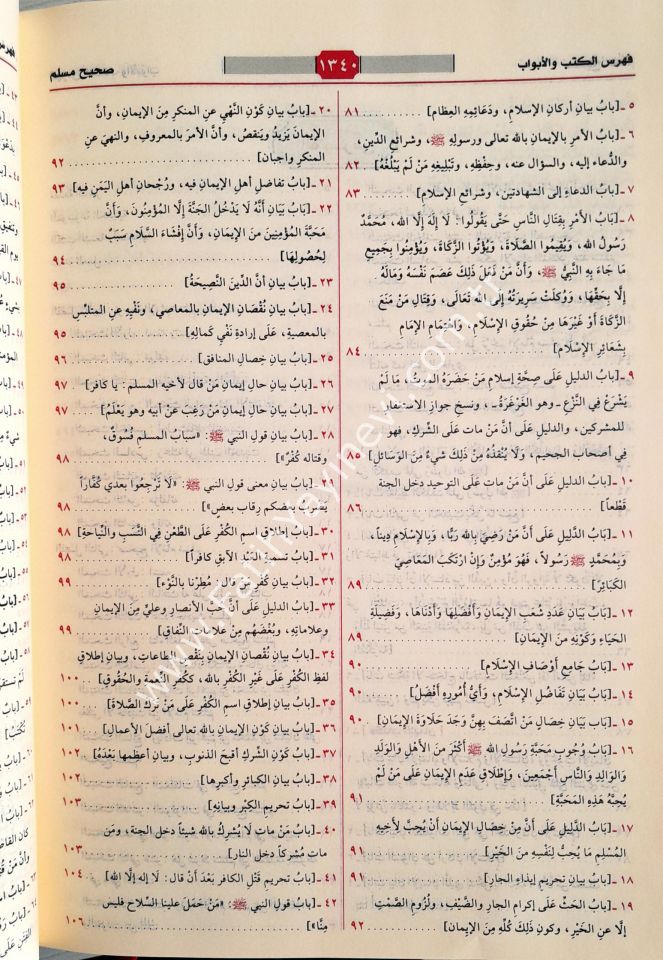 فهرس الكتب والأبواب
١٣٤٠
صحيح مسلم
٥ ـ [بابُ بيان أركان الإسلام، ودَعَائِمِهِ العِظَام] ٨١
٦ ـ [باب الأمرِ بالإيمان بالله تعالى ورسولِهِ ﷺ، وشرائعِ الدِّينِ،
والدُّعاء إليه، والسؤال عنه، وحِفْظِهِ، وتَبْلِيغِهِ مَنْ لَمْ يَبْلُغْهُ] ٨٢
٧ ـ [باب الدعاءِ إلى الشهادتينِ، وشرائع الإسلامِ] ٨٣
٨ ـ [بابُ الأَمْرِ بِقِتَالِ النَّاسِ حَتَّى يَقُولُوا: لَا إِلَهَ إِلَّا الله، مُحَمَّدٌ
رَسُولُ الله، وَيُقِيمُوا الصَّلَاةَ، وَيُؤْتُوا الزَّكَاةَ، وَيُؤْمِنُوا بِجَمِيعِ
مَا جَاءَ بِهِ النَّبِيُّ ﷺ، وَأَنَّ مَنْ فَعَلَ ذَلِكَ عَصَمَ نَفْسَهُ وَمَالَهُ
إِلَّا بِحَقِّهَا، وَوُكِلَتْ سَرِيرَتُهُ إِلَى الله تَعَالَى، وَقِتَالِ مَنْ مَنَعَ
الزَّكَاةَ أَوْ غَيْرَهَا مِنْ حُقُوقِ الإِسْلَامِ، وَاهْتِمَامِ الإِمَامِ
بِشَعَائِرِ الإِسْلَامِ] ٨٤
٩ ـ [باب الدليلِ عَلَى صِحَّةِ إسلامِ مَنْ حَضَرَهُ الموتُ، مَا لَمْ
يَشْرَعْ فِي النَّزْعِ ـ وهو الغَرْغَرَةُ ـ، ونسخِ جوازِ الاستغفارِ
للمشركينَ، والدليلِ عَلَى أنَّ مَنْ مات عَلَى الشِّركِ، فهو
في أصحابِ الجحيمِ، وَلَا يُنْقِذُهُ مِنْ ذَلِكَ شيءٌ مِنَ الوَسَائِلِ] ٨٥
١٠ ـ [باب الدليل عَلَى أنَّ مَنْ ماتَ عَلَى التوحيد دخل الجنة
قَطْعاً] ٨٦
١١ ـ [بَابُ الدَّلِيلِ عَلَى أَنَّ مَنْ رَضِيَ بِالله رَبًّا، وَبِالإِسْلَامِ دِيناً،
وَبِمُحَمَّدٍ ﷺ رَسُولاً، فَهُوَ مُؤْمِنٌ وَإِنْ ارْتَكَبَ المَعَاصِيَ
الكَبَائِرَ] ٨٩
١٢ ـ [بابُ بَيَانِ عَدَدِ شُعَبِ الإِيمَانِ وَأَفْضَلِهَا وَأَدْنَاهَا، وَفَضِيلَةِ
الحَيَاءِ وَكَوْنِهِ مِنَ الإِيمَانِ] ٨٩
١٣ ـ [بَابُ جَامِعِ أَوْصَافِ الإِسْلَامِ] ٩٠
١٤ ـ [بَابُ بَيَانِ تَفَاضُلِ الإِسْلَامِ، وَأَيُّ أُمُورِهِ أَفْضَلُ] ٩٠
١٥ ـ [بَاب بَيَانِ خِصَالٍ مَنْ اتَّصَفَ بِهِنَّ وَجَدَ حَلَاوَةَ الإِيمَانِ] ٩٠
١٦ ـ [بَابُ وُجُوبِ مَحَبَّةِ رَسُولِ الله ﷺ أَكْثَرَ مِنَ الأَهْلِ وَالْوَلَدِ
وَالْوَالِدِ وَالنَّاسِ أَجْمَعِينَ، وَإِطْلَاقِ عَدَمِ الإِيمَانِ عَلَى مَنْ لَمْ
يُحِبَّهُ هَذِهِ المَحَبَّةَ] ٩١
١٧ ـ [بَابُ الدَّلِيلِ عَلَى أَنَّ مِنْ خِصَالِ الإِيمَانِ أَنْ يُحِبَّ لِأَخِيهِ
المُسْلِمِ مَا يُحِبُّ لِنَفْسِهِ مِنَ الخَيْرِ] ٩١
١٨ ـ [باب بيان تحريمِ إيذاءِ الجارِ] ٩١
١٩ ـ [باب الحَثِّ عَلَى إكرامِ الجارِ والضَّيْفِ، ولُزومِ الصَّمْتِ
إلَّا عنِ الخَيْرِ، وكونِ ذَلِكَ كُلِّهِ مِنَ الإيمانِ] ٩٢
٢٠ ـ [بابُ بيانِ كَوْنِ النَّهْيِ عنِ المنكرِ مِنَ الإيمانِ، وأنَّ
الإيمانَ يَزِيدُ ويَنقصُ، وأنَّ الأمرَ بالمعروفِ، والنهيَ عنِ
المنكرِ واجبانِ] ٩٢
٢١ ـ [باب تفاضلِ أهلِ الإيمانِ فيه، ورُجْحانِ أهلِ اليَمَنِ فيه] ٩٣
٢٢ ـ [بَابُ بَيَانِ أَنَّهُ لَا يَدْخُلُ الجَنَّةَ إِلَّا المُؤْمِنُونَ، وَأَنَّ
مَحَبَّةَ المُؤْمِنِينَ مِنَ الإِيمَانِ، وَأَنَّ إِفْشَاءَ السَّلَامِ سَبَبٌ
لِحُصُولِهَا] ٩٤
٢٣ ـ [بابُ بيانِ أنَّ الدِّينَ النَّصِيحَةُ] ٩٥
٢٤ ـ [بابُ بيانِ نُقْصَانِ الإِيمَانِ بالمعاصي، ونَفْيِهِ عنِ المتلبِّسِ
بالمعصيةِ، عَلَى إرادةِ نَفْيِ كمالِهِ] ٩٥
٢٥ ـ [باب بيانِ خِصَالِ المنافق] ٩٦
٢٦ ـ [باب بيانِ حالِ إيمانِ مَنْ قالَ لأخيه المسلمِ: يا كافر] ٩٧
٢٧ ـ [باب بيانِ حالِ إيمانِ مَنْ رَغِبَ عن أبيه وهو يَعْلَمُ] ٩٧
٢٨ ـ [باب بيانِ قولِ النبي ﷺ: «سبابُ المسلمِ فُسُوقٌ،
وقتاله كُفْرٌ»] ٩٨
٢٩ ـ [بابُ بيانِ معنى قولِ النبي ﷺ: «لَا تَرْجِعُوا بعدي كُفَّاراً
يَضْرِبُ بعضكم رِقاب بعض»] ٩٨
٣٠ ـ [باب إطلاقِ اسمِ الكُفْرِ عَلَى الطَّعْنِ فِي النَّسَبِ والنِّياحةِ] ٩٨
٣١ ـ [باب تسميةِ العَبْدِ الآبقِ كافراً] ٩٨
٣٢ ـ [بابُ بيان كُفْرِ مَنْ قالَ: مُطِرْنا بِالنَّوْءِ] ٩٩
٣٣ ـ [باب الدليلِ عَلَى أنَّ حُبَّ الأنصارِ وعليٍّ مِنَ الإيمانِ
وعلاماتِهِ، وبُغْضَهُم مِنْ علاماتِ النِّفاقِ] ٩٩
٣٤ ـ [بابُ بيانِ نُقْصَانِ الإيمانِ بنَقْصِ الطاعاتِ، وبيانِ إطلاقِ
لفظِ الكُفْرِ عَلَى غَيْرِ الكُفْرِ بالله، ككُفْرِ النِّعمةِ والحُقُوقِ] ١٠٠
٣٥ ـ [باب بيانِ إطلاقِ اسمِ الكُفْرِ عَلَى مَنْ تركَ الصَّلَاةَ] ١٠٠
٣٦ ـ [باب بيانِ كَوْنِ الإيمانِ بالله تعالى أفضلَ الأعمالِ] ١٠١
٣٧ ـ [باب كَوْنِ الشِّركِ أقبحَ الذنوبِ، وبيانِ أعظمِها بَعْدَهُ] ١٠٢
٣٨ ـ [باب بيانِ الكبائرِ وأكبرِها] ١٠٢
٣٩ ـ [باب تحريمِ الكِبْرِ وبيانِهِ] ١٠٣
٤٠ ـ [بابُ مَنْ مات لَا يُشركُ بالله شيئاً دخل الجنة، ومَن
مات مُشْرِكاً دخل النار] ١٠٣
٤١ ـ [باب تحريمِ قَتْلِ الكافرِ بَعْدَ أنْ قال: لَا إله إلَّا الله] ١٠٤
٤٢ ـ [باب قولِ النبي ﷺ: «مَنْ حَمَلَ علينا السِّلاح فليس
مِنَّا»] ١٠٦